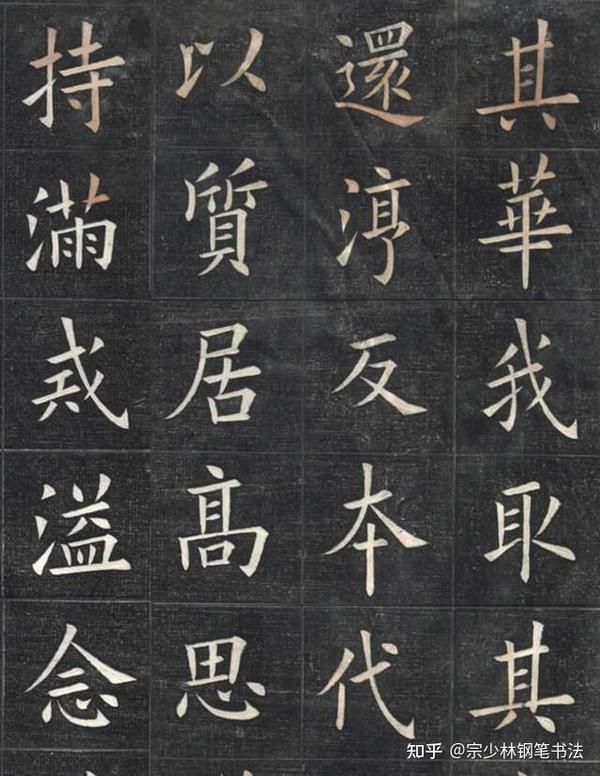 其華我取其
還淳反本代
以質居高思
持滿戒溢念
知乎 @宗少林钢笔书法